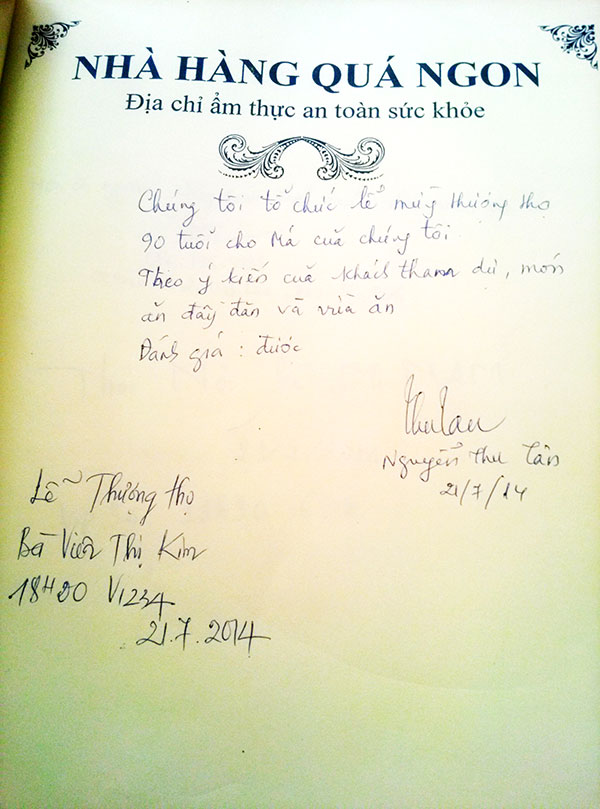 NHÀ HÀNG QUÁ NGON
Địa chỉ ẩm thực an toàn sức khỏe
Chúng tôi tổ chức lể mừng thượng thọ
90 tuổi cho Má cuả chúng tôi.
Theo ý kiến cuả khách tham dự, món
ăn đầy đặn và vừa ăn
Đánh giá : được
Nguyễn Thu Tân
21/7/14
Lễ Thượng thọ
Bà Viên Thị Kim
18H00 V1234
21.7.2014